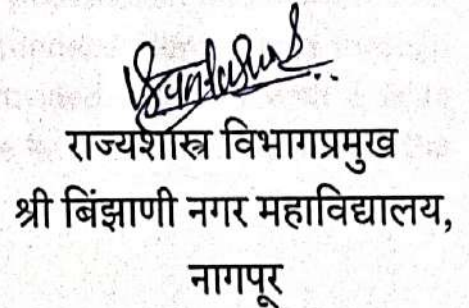 राज्यशास्त्र विभागप्रमुख
श्री बिंझाणी नगर महाविद्यालय,
नागपूर